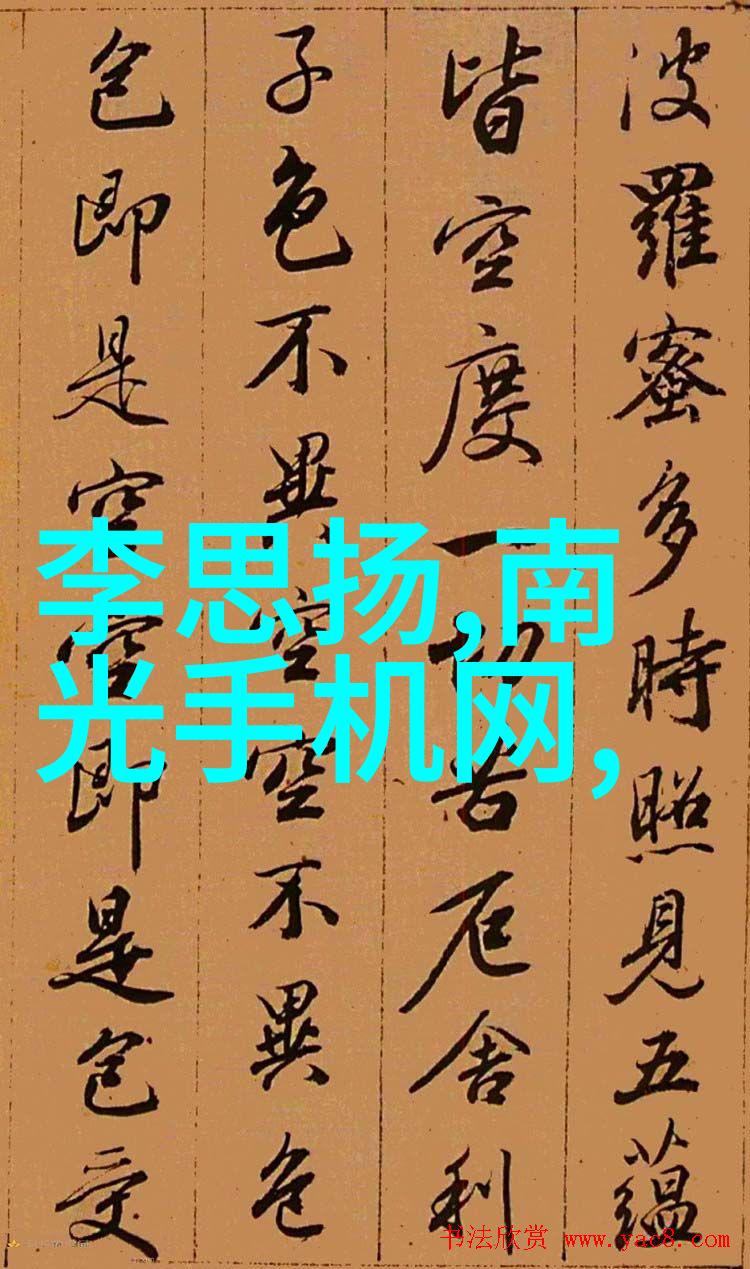 波羅蜜多時照見五蘊
皆空度一切苦厄舍利
子色不異空空不異色
色即是空空即是色受
李思扬,南
光手机网,
书法欣赏 www.yac8.com